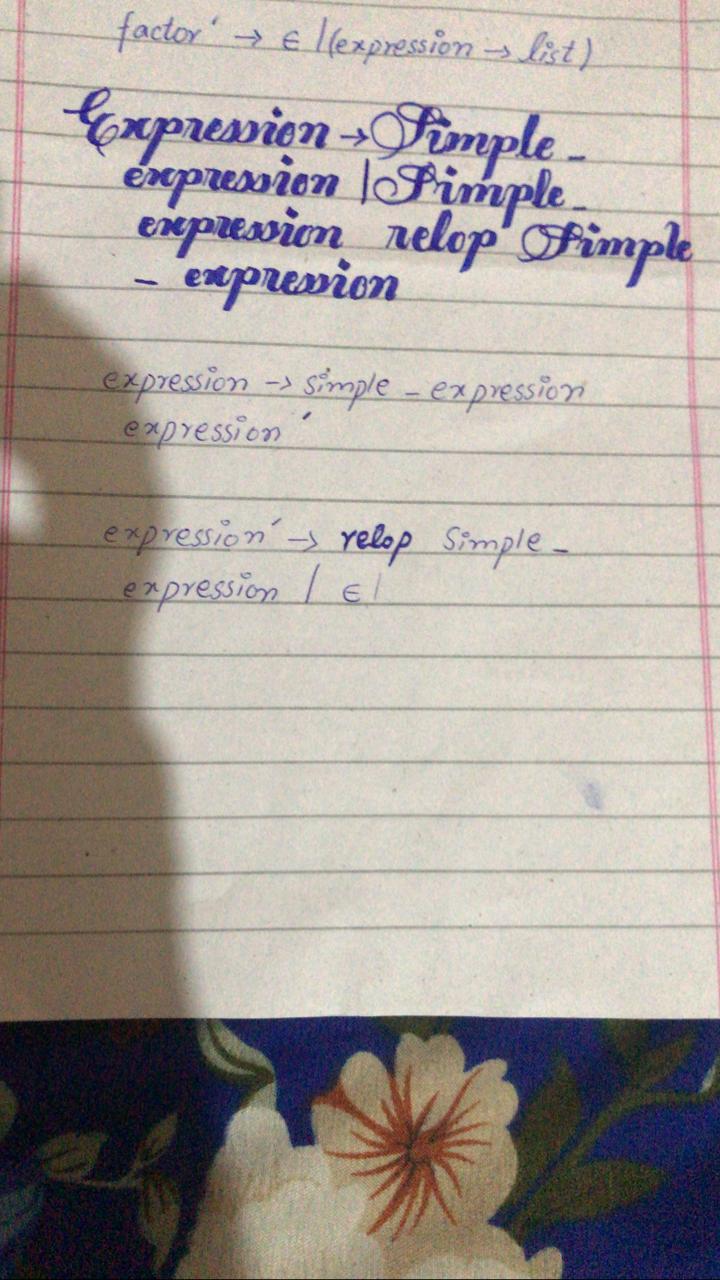 factor' → ∈ | (expression → list)
Expression → Simple -
expression | Simple -
expression relop Simple
- expression
expression → simple - expression
expression'
expression' → relop Simple -
expression | ∈ |